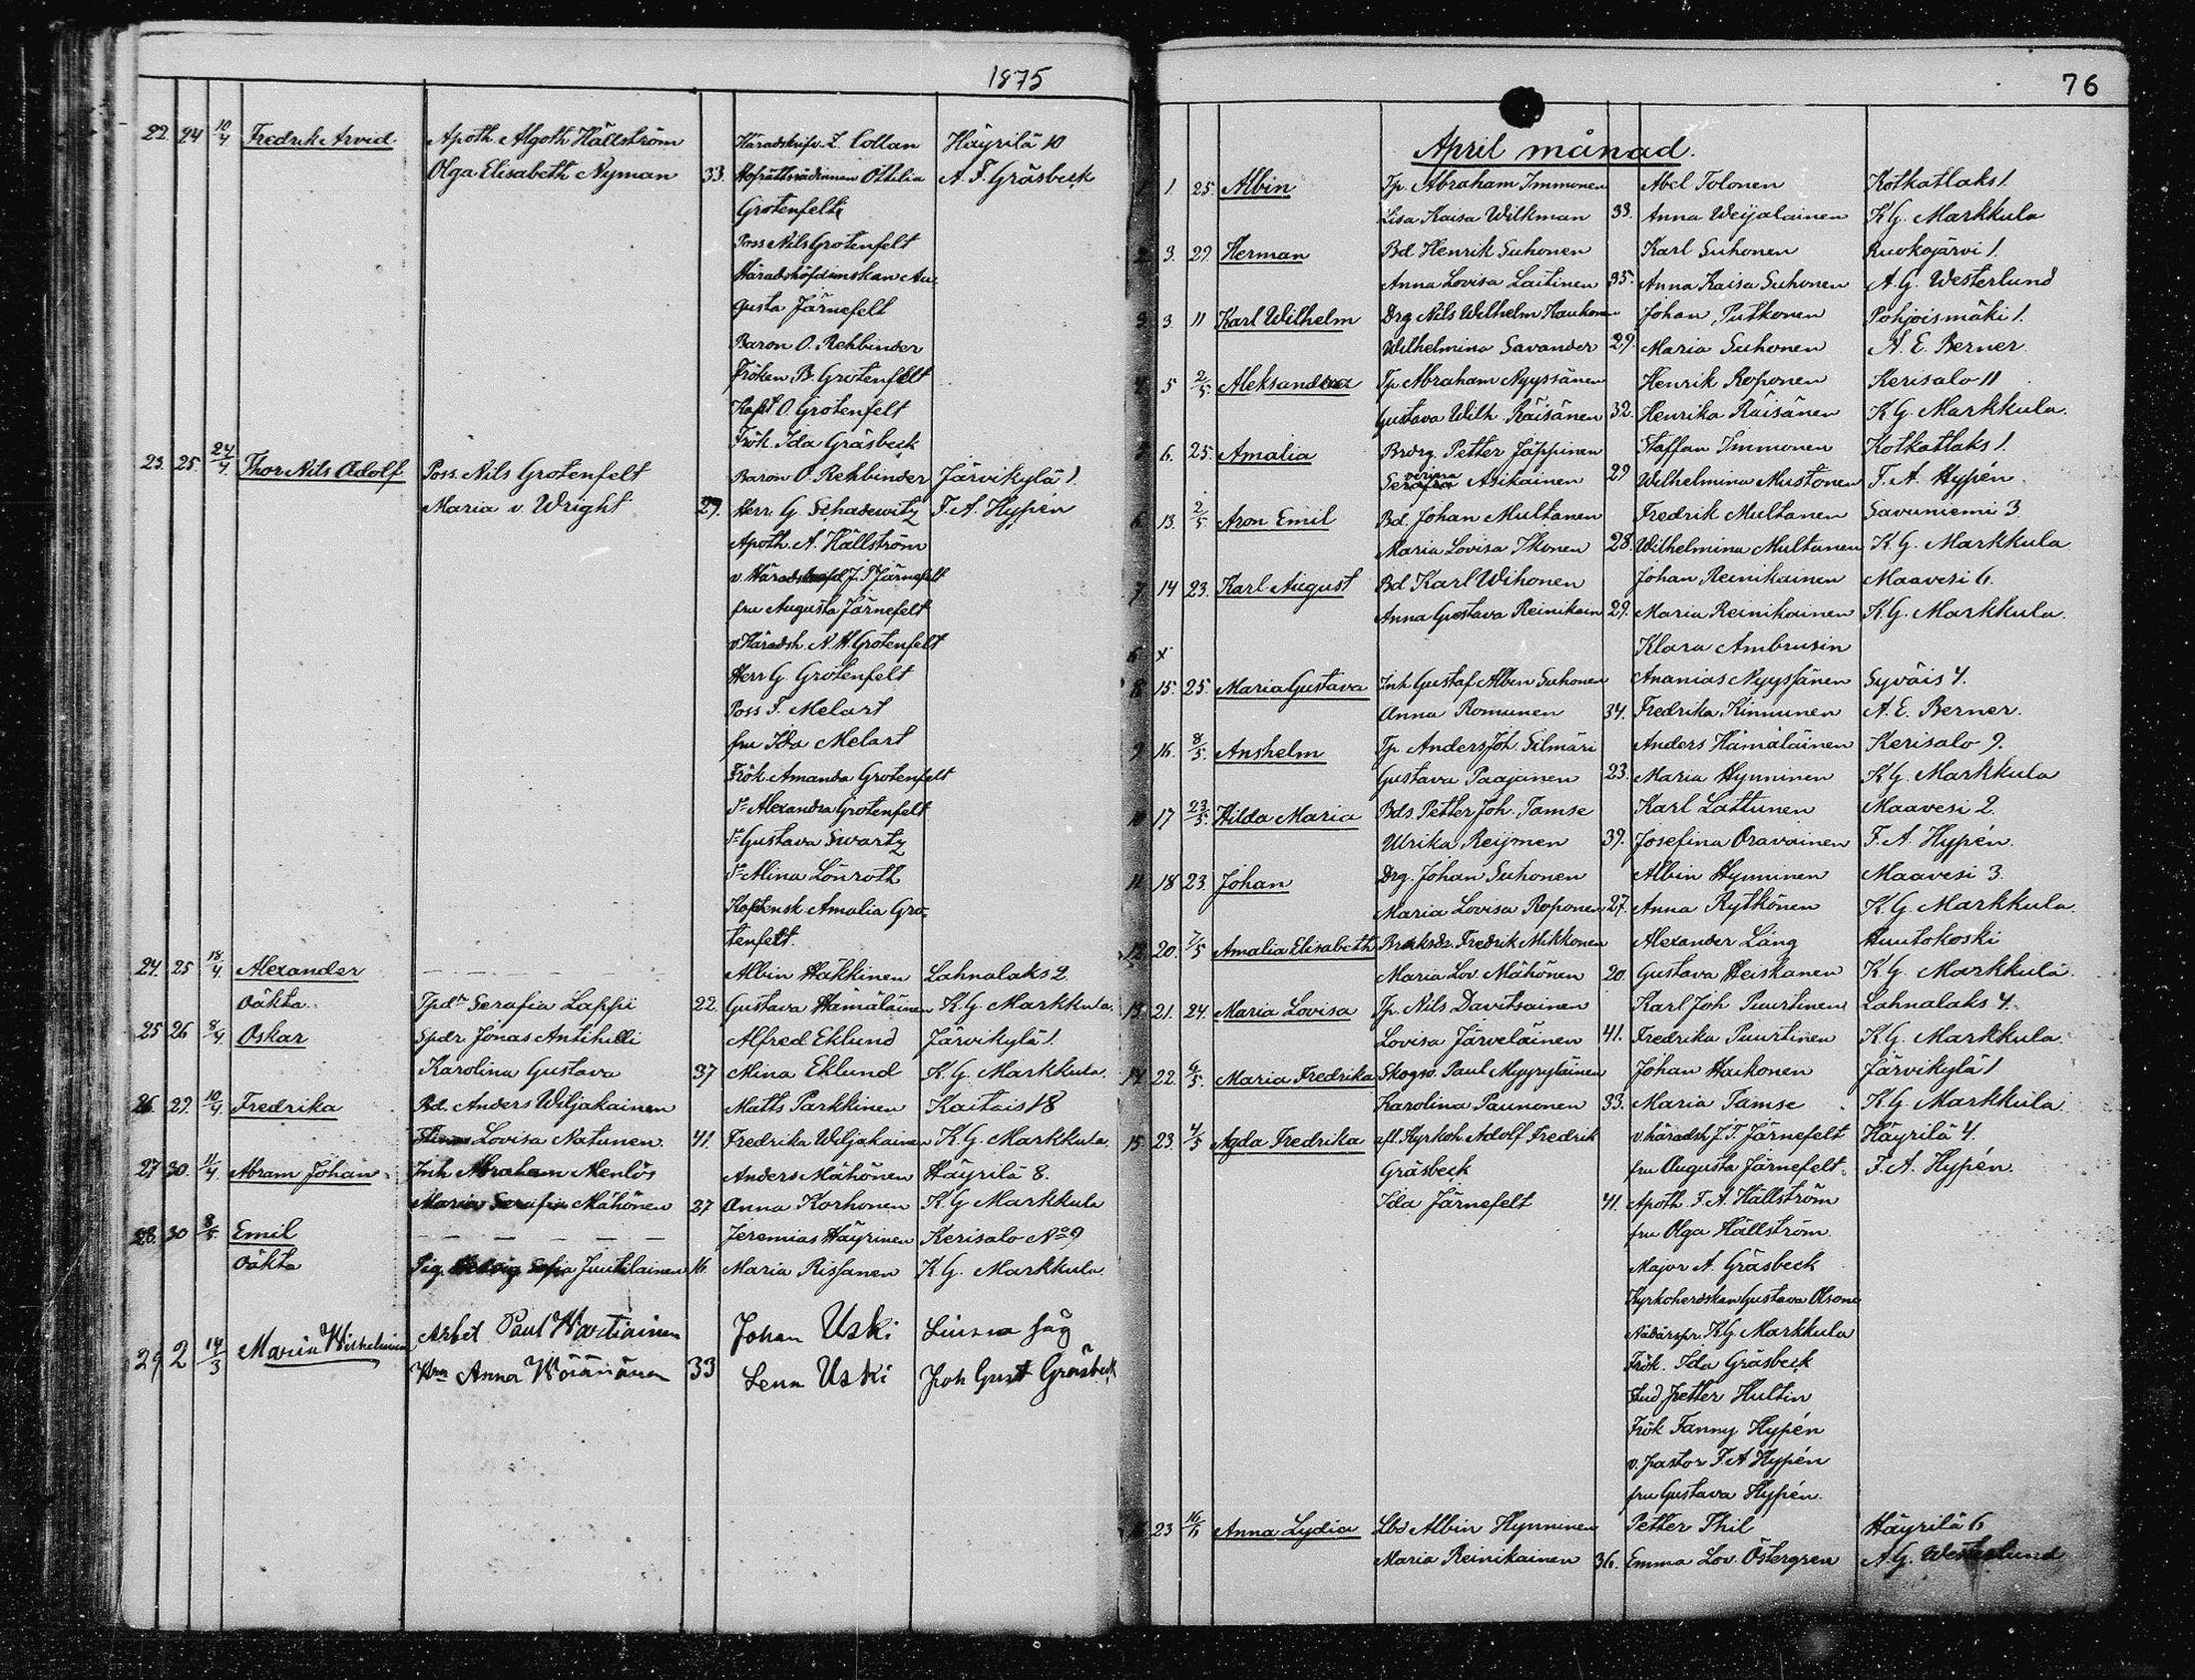 1875
22. 24 10/4 Fredrik Arvid. Apoth. Algoth Hällström Häradskrifv. Z. Collan Häyrilä 10
Olga Elisabeth Nyman 33. Hofrättsrådinnan Ottilia A. F. Gräsbeck
Grotenfelt
Poss Nils Grotenfelt
Häradshöfdinskan Au-
gusta Järnefelt
Baron O. Rehbinder
Fröken B. Grotenfelt
Kapt O. Grotenfelt
Frök. Ida Gräsbeck
23. 25. 24/4. Thor Nils Adolf Poss. Nils Grotenfelt Baron O. Rehbinder Järvikylä 1.
Maria v. Wright 29. Herr G. Schadewitz F. A. Hypén
Apoth. A. Hällström
v. Häradshöfd J. T. Järnefelt
fru Augusta Järnefelt
v. Häradsh. N. H. Grotenfelt
Herr G. Grotenfelt
Poss J. Melart
fru Ida Melart
Frök. Amanda Grotenfelt
Alexandra Grotenfelt
Gustava Swartz
Alina Lönroth
Kaptensk Amalia Gro-
tenfelt.
24. 25 18/4 Alexander — — — — Albin Häkkinen Lahnalaks 2.
oäkta. Tpdr Serafia Lappi 22. Gustava Hämäläinen K. G. Markkula.
25 26 8/4. Oskar Spdr. Jonas Antihilli Alfred Eklund Järvikylä 1.
Karolina Gustava 37 Mina Eklund K. G. Markkula.
26. 29. 10/4. Fredrika Bd. Anders Wiljakainen Matts Parkkinen Kaitais 18
Lovisa Natunen 41. Fredrika Wiljakainen K. G. Markkula
27 30. 11/4. Abram Johan Inh Abraham Menlös Anders Mähönen Häyrilä 8.
Maria Serafia Mähönen 27 Anna Korhonen K. G Markkula
28. 30 8/5. Emil — — — — — Jeremias Häyrinen Kerisalo No 9
oäkta Pig. Sofia Juutilainen 16. Maria Rissanen K. G. Markkula.
29 2 14/3 Maria Wilhelmina Arbet. Paul Wartiainen Johan Uski Liusna såg
Hru Anna Wäänänen 33 Lena Uski Joh Gust Gräsbeck
76
April månad.
1. 1. 25. Albin Tp. Abraham Immonen Abel Tolonen Kotkatlaks 1.
Lisa Kaisa Wilkman 33. Anna Weijalainen K. G. Markkula
2. 3. 29. Herman Bd Henrik Suhonen Karl Suhonen Ruokojärvi 1.
Anna Lovisa Laitinen 35. Anna Kaisa Suhonen A. G. Westerlund
3. 3. 11 Karl Wilhelm Drg Nils Wilhelm Kauhonen Johan Putkonen Pohjoismäki 1.
Wilhelmina Savander 29. Maria Suhonen A. E. Berner.
4. 5 2/5. Aleksandra Tp. Abraham Nyyssänen Henrik Roponen Kerisalo 11
Gustava Wilh. Räisänen 32. Henrika Räisänen K. G. Markkula.
5. 6. 25. Amalia Brdrg. Petter Jäppinen Staffan Immonen Kotkatlaks 1.
Severina Asikainen 29 Wilhelmina Mustonen F. A. Hypén.
6. 13. 2/5 Aron Emil Bd. Johan Multanen Fredrik Multanen Savuniemi 3
Maria Lovisa Ikonen 28. Wilhelmina Multanen K. G. Markkula
7. 14 23. Karl August Bd Karl Wihonen Johan Reinikainen Maavesi 6.
Anna Gustava Reinikain 29. Maria Reinikainen K. G. Markkula.
6 x Klara Ambrusin
8. 15. 25. Maria Gustava Inh Gustaf Albin Suhonen Ananias Nyyssänen Syväis 4.
Anna Romunen 34. Fredrika Kinnunen A. E. Berner.
9. 16. 8/5. Anshelm Tp Anders Joh. Silmäri Anders Hämäläinen Kerisalo 9.
Gustava Paajanen 23. Maria Hynninen K. G. Markkula
10 17 23/5. Hilda Maria Bds. Petter Joh. Tamse Karl Lattunen Maavesi 2.
Ulrika Reijmen 39. Josefina Oravainen F. A. Hypén.
11 18 23. Johan Drg. Johan Suhonen Albin Hynninen Maavesi 3.
Maria Lovisa Roponen 27. Anna Rytkönen K. G. Markkula.
12 20. 7/5 Amalia Elisabeth Fredrik Mikkonen Alexander Läng Huutokoski
Maria Lov. Mähönen 20. Gustava Heiskanen K. G. Markkula.
13. 21. 24. Maria Lovisa Tp. Nils Davitsainen Karl Joh Puurtinen Lahnalaks 4.
Lovisa Järveläinen 41. Fredrika Puurtinen K. G. Markkula.
14 22. 6/5. Maria Fredrika Skogsv. Paul Myyryläinen Johan Haikonen Järvikylä 1
Karolina Paunonen 33. Maria Tamse K. G Markkula.
15 23. 4/5 Agda Fredrika afl. Kyrkoh Adolf Fredrik v. häradsh J. T. Järnefelt Häyrilä 4.
Gräsbeck fru Augusta Järnefelt F. A. Hypén.
Ida Järnefelt 41. Apoth. F. A. Hällström
fru Olga Hällström
Major A. Gräsbeck
Kyrkoherdskan Gustava Olsoni
Nådårspr. K G. Markkula
Frök. Ida Gräsbeck
Stud Petter Hultin
Frök Fanny Hypén
v. pastor F. A Hypén
fru Gustava Hypén.
23 16/6 Anna Lydia Lbs Albin Hynninen Petter Thil Häyrilä 6
Maria Reinikainen 36. Emma Lov. Östergren A. G. Westerlund